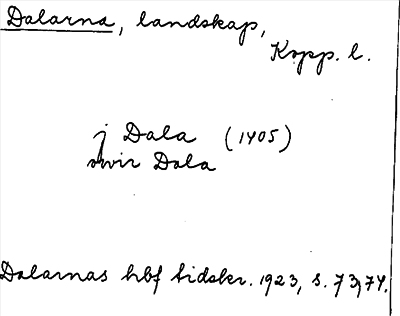 Dalarna, landskap,
Kopp. l.
j Dala (1405)
owir Dala
Dalarnas hbf tidskr. 1923, s. 73, 74.